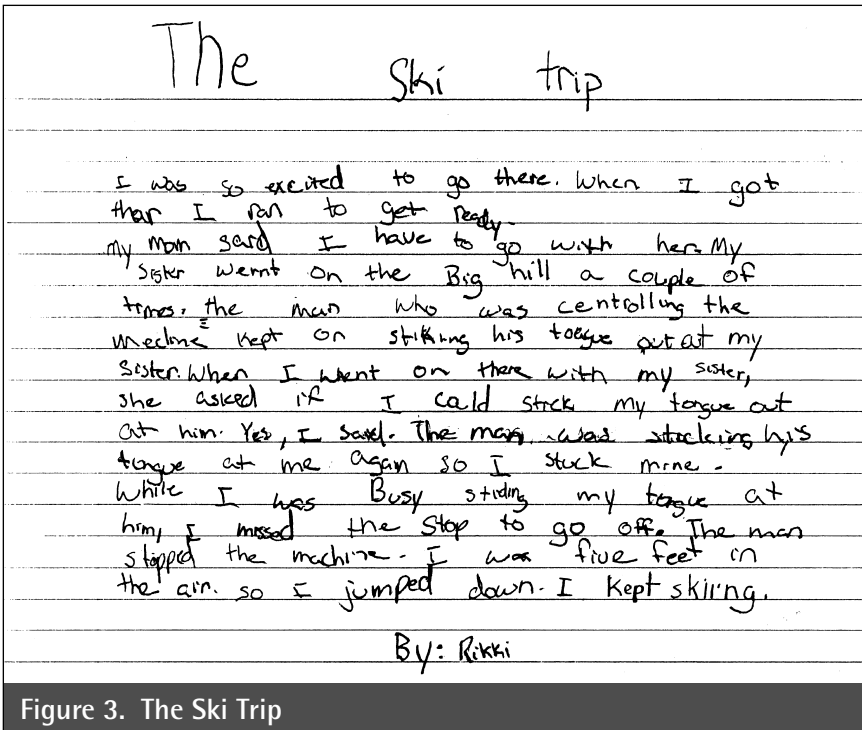 The Ski trip
I was so excited to go there. When I got
thar I ran to get ready.
my mom said I have to go with her. My
sister wernt on the Big hill a couple of
times. the man who was centrolling the
mecline kept on stiking his tongue out at my
sister. When I went on there with my sister,
she asked if I could stick my tongue out
at him. Yes, I said. The man was stocking his
tongue at me agan so I stuck mine.
While I was Busy stiding my tongue at
him, I missed the stop to go off. The man
stopped the machine. I was five feet in
the air. so I jumped down. I kept skiing.
By: Rikki
Figure 3. The Ski Trip